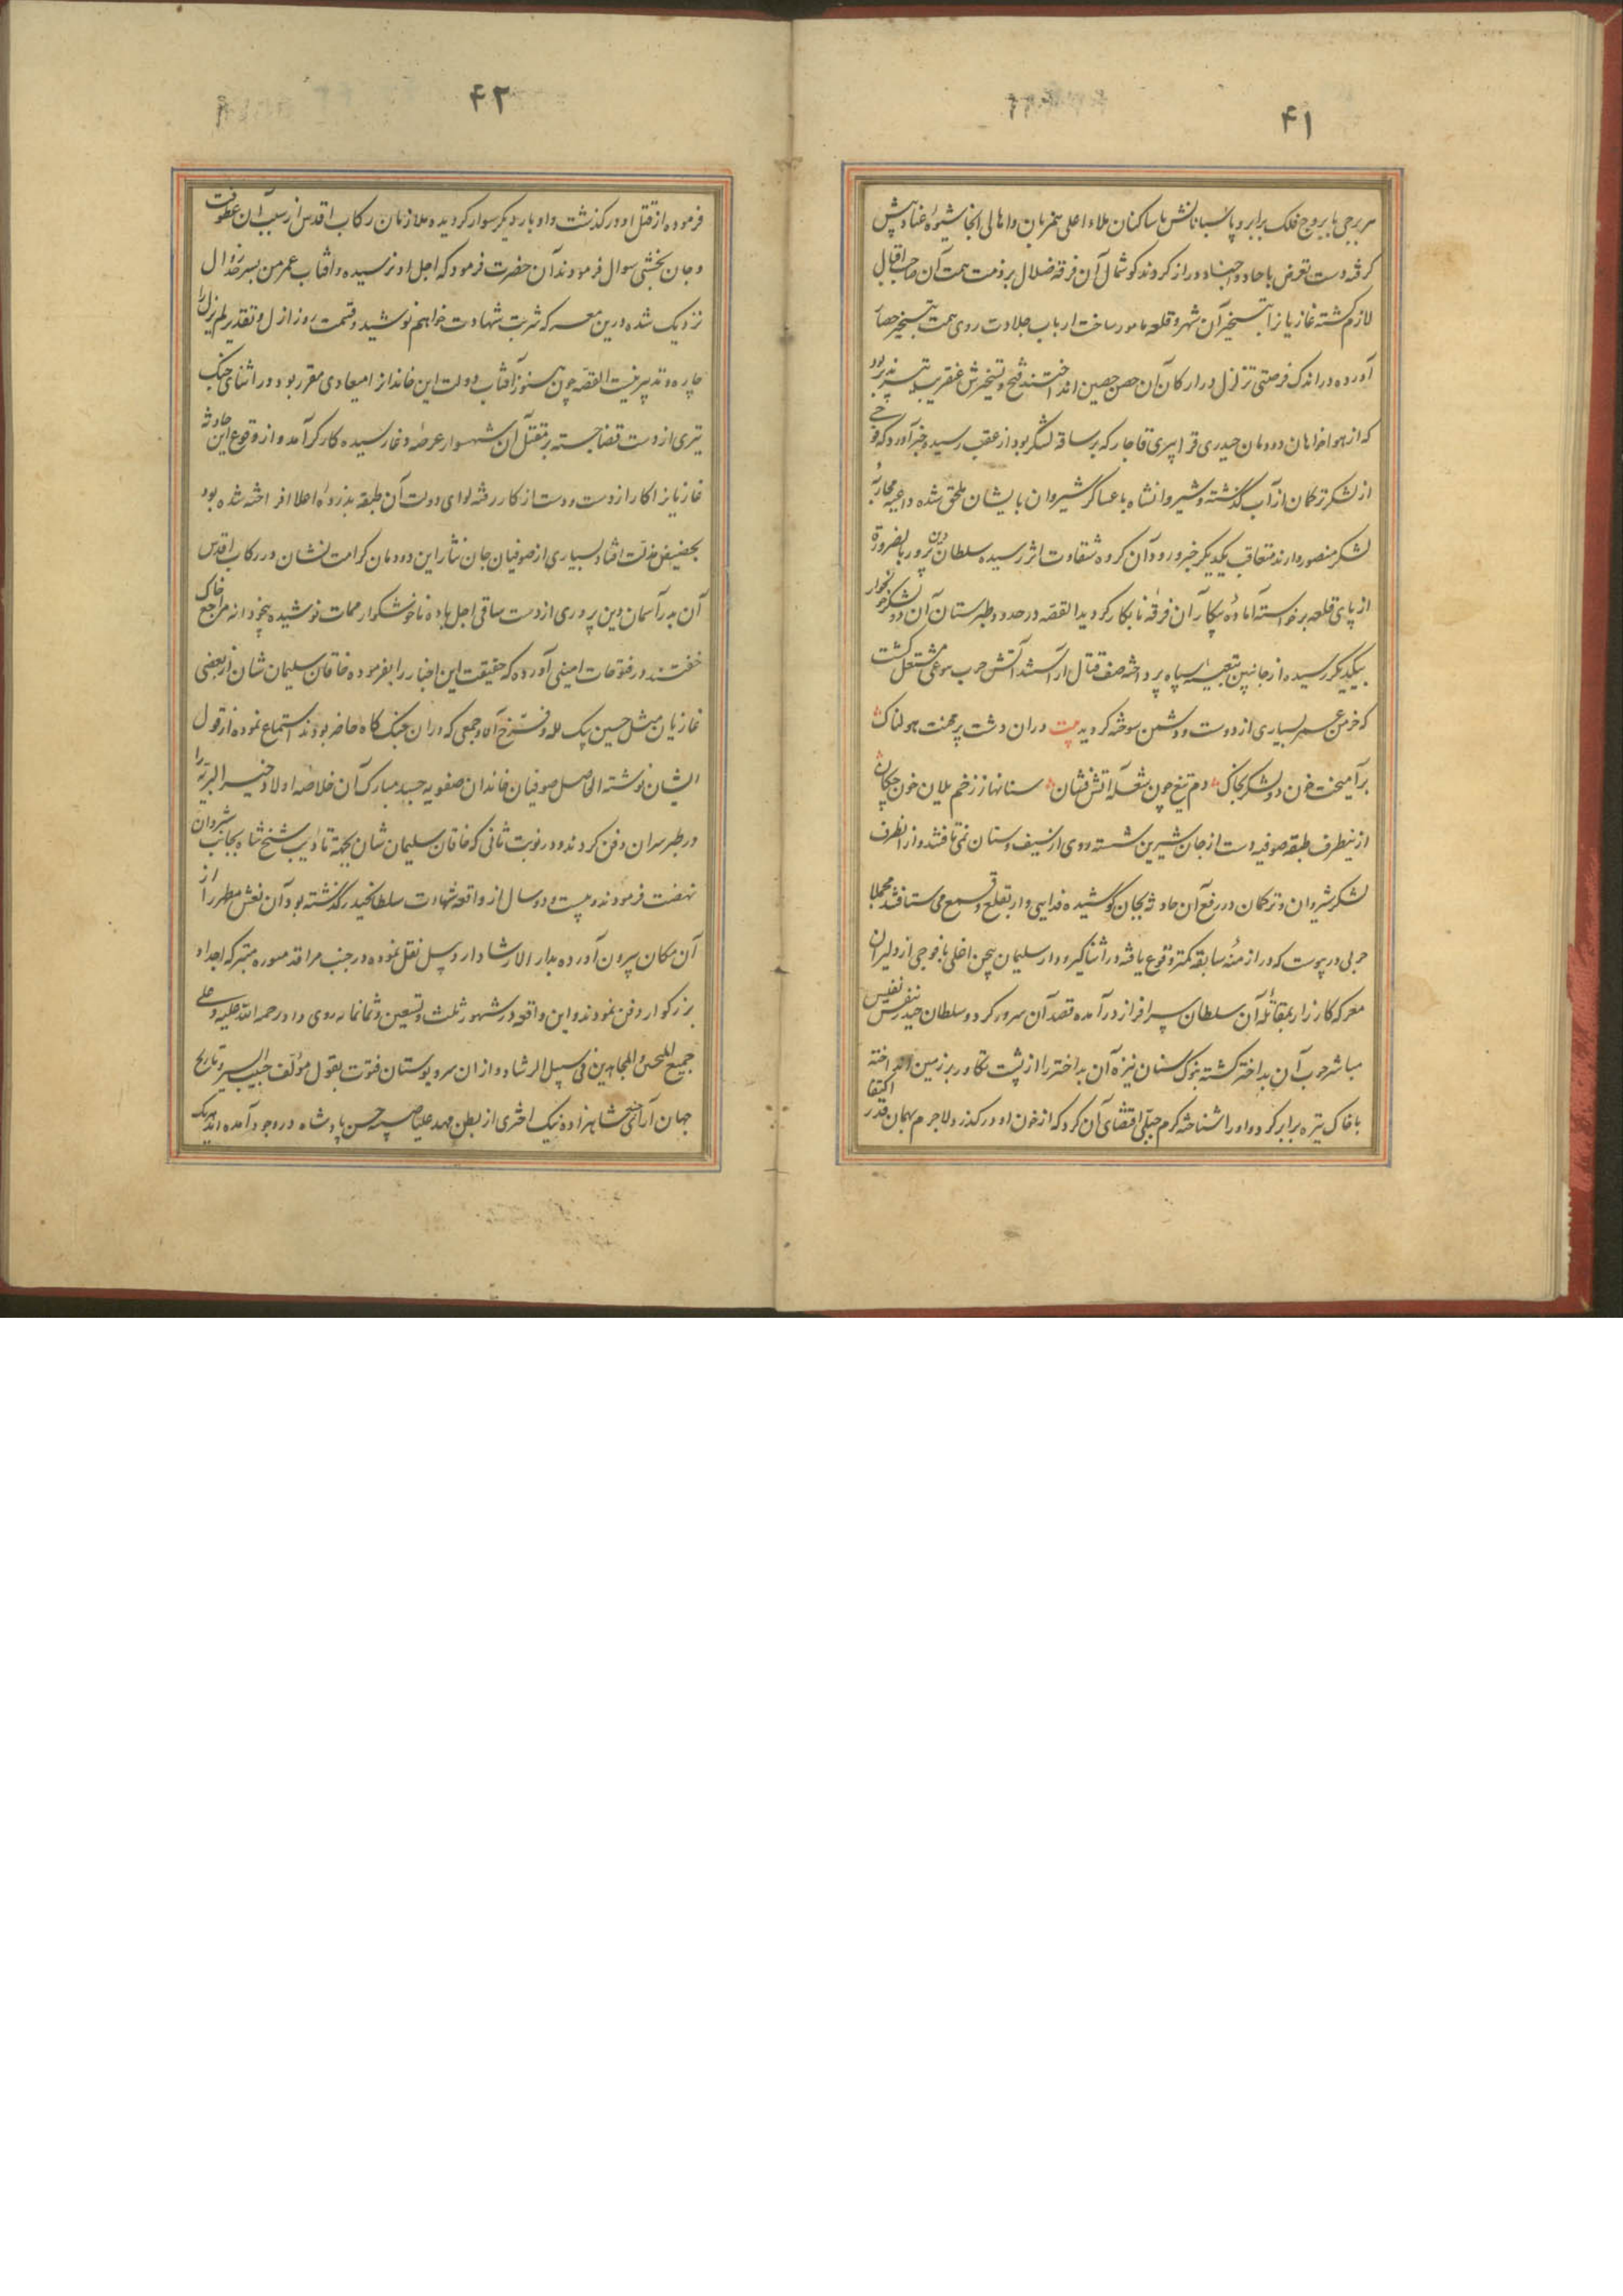 ۴۱
هر برجی با بروج فلک برابر و پاسبانانش با ساکنان ملاء اعلی همزبان و اهالی انجا شیوهٔ عناد پیش
کرفته دست تعرض باحاد و اجناد دراز کردند کوشمال آن فرقه ضلال بر ذمت همت آن صاحب اقبال
لازم کشته غازیانرا بتسخیر آن شهر و قلعه مامور ساخت ارباب جلادت روی همت بتسخیر حصار
آورده در اندک فرصتی تزلزل در ارکان آن حصن حصین انداختند فتح و تسخیرش عنقریب تیسیر پذیر بود
که از هواخواهان دودمان حیدری قراپیری قاجار که بر ساقه لشکر بود از عقب رسید و خبر آورد که فوجی
از لشکر ترکمان از آب گذشته و شیروانشاه با عساکر شیروان بایشان ملحق شده داعیه محاربهٔ
لشکر منصور دارند متعاقب یکدیگر خبر ورود آن کروه شقاوت اثر رسیده سلطان دین پرور بالضروره
از پای قلعه برخواسته آمادهٔ پیکار آن فرقهٔ نابکار کردید القصه در حدود طبرستان آن دو لشکر خونخوار
بیکدیکر رسیده از جانبین بتعبیهٔ سپاه پرداخته صف قتال اراستند آتش حرب بنوعی مشتعل کشت
که خرمن عمر بسیاری از دوست و دشمن سوخته کردید بیت دران دشت پر محنت هولناک
برآمیخت خون دو لشکر بخاک دم تیغ چون شعله آتش فشان سنانها ز زخم یلان خون چکان
ازینطرف طبقه صوفیه دست از جان شیرین شسته روی از سیف و سنان نمی تافتند و از انطرف
لشکر شروان و ترکمان در رفع آن حادثه بجان کوشیده فدایی وار بقلع و قمع می شتافتند مجملا
حربی در پیوست که در ازمنهٔ سابقه کمتر وقوع یافته در اثنا کیرودار سلیمان بیجن اخلی با فوجی از دلیران
معرکه کارزار بمقابلهٔ آن سلطان سرافراز درآمده قصد آن سرور کرد و سلطان حیدر بنفس نفیس
مباشر حرب آن بداختر کشته بنوک سنان نیزه آن بداختر را از پشت تکاور بر زمین انداخته
با خاک تیره برابر کرد و او را شناخته کرم جبلی اقتضای آن کرد که از خون او درکذرد لاجرم بهمان قدر اکتفا
۴۲
فرموده از قتل او درکذشت و او بار دیکر سوار کردیده ملازمان رکاب اقدس از سبب آن عطوفت
و جان بخشی سوال فرمودند آن حضرت فرمود که اجل او نرسیده و افتاب عمر من بسرحد زوال
نزدیک شده درین معرکه شربت شهادت خواهم نوشید و قسمت روز ازل و تقدیر لم یزل را
چاره و تدبیر نیست القصه چون هنوز آفتاب دولت این خاندانرا میعادی مقرر بود در اثنای جنک
تیری از دست قضا جسته بر مقتل آن شهسوار عرصهٔ وغا رسیده کارکر آمد و از وقوع این حادثه
غازیانرا کار از دست و دست از کار رفته لوای دولت آن طبقه بذروهٔ اعلا افراخته شده بود
بحضیض مذلت افتاد و بسیاری از صوفیان جان نثار این دودمان کرامت نشان در رکاب اقدس
آن بدر آسمان دین پروری از دست ساقی اجل باده ناخوشکوار ممات نوشیده بیخودانه در مضجع خاک
خفتند در فتوحات امینی آورده که حقیقت این اخبار را بفرموده خاقان سلیمان شان از بعضی
غازیان مثل حسین بیک لله و فرخ آقا و جمعی که دران جنک کاه حاضر بودند استماع نموده از قول
ایشان نوشته الحاصل صوفیان خاندان صفویه جسد مبارک آن خلاصهٔ اولاد خیر البریه را
در طبرسران دفن کردند و در نوبت ثانی که خاقان سلیمان شان بجهة تادیب شیخ شاه بجانب شروان
نهضت فرمودند و بیست و دو سال از واقعه شهادت سلطانحیدر گذشته بود آن نعش مطهر را از
آن مکان بیرون آورده بدار الارشاد اردبیل نقل نموده در جنب مراقد منوره متبرکه اجداد
بزرکوار دفن نمودند و این واقعه در شهور ثلث و تسعین و ثمانمائه روی داد رحمه الله علیه و علی
جمیع المحسن و المجاهدین فی سبیل الرشاد و از ان سرو بوستان فتوت بقول مؤلف حبیب السیر و تاریخ
جهان آرا شش شاهزاده نیک اختری از بطن مهد علیا صبیه حسن پادشاه در وجود آمده اند هریک